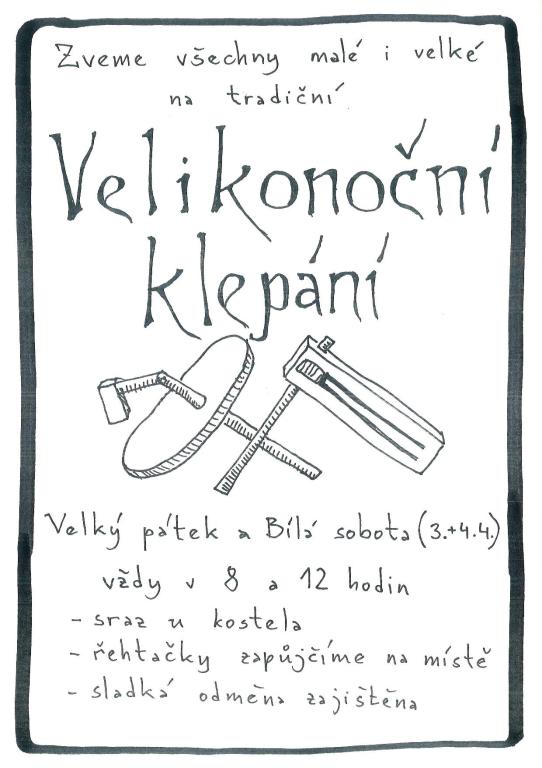 Zveme všechny malé i velké
na tradiční
Velikonoční
klepání
Velký pátek a Bílá sobota (3.+4.4.)
vždy v 8 a 12 hodin
- sraz u kostela
- řehtačky zapůjčíme na místě
- sladká odměna zajištěna